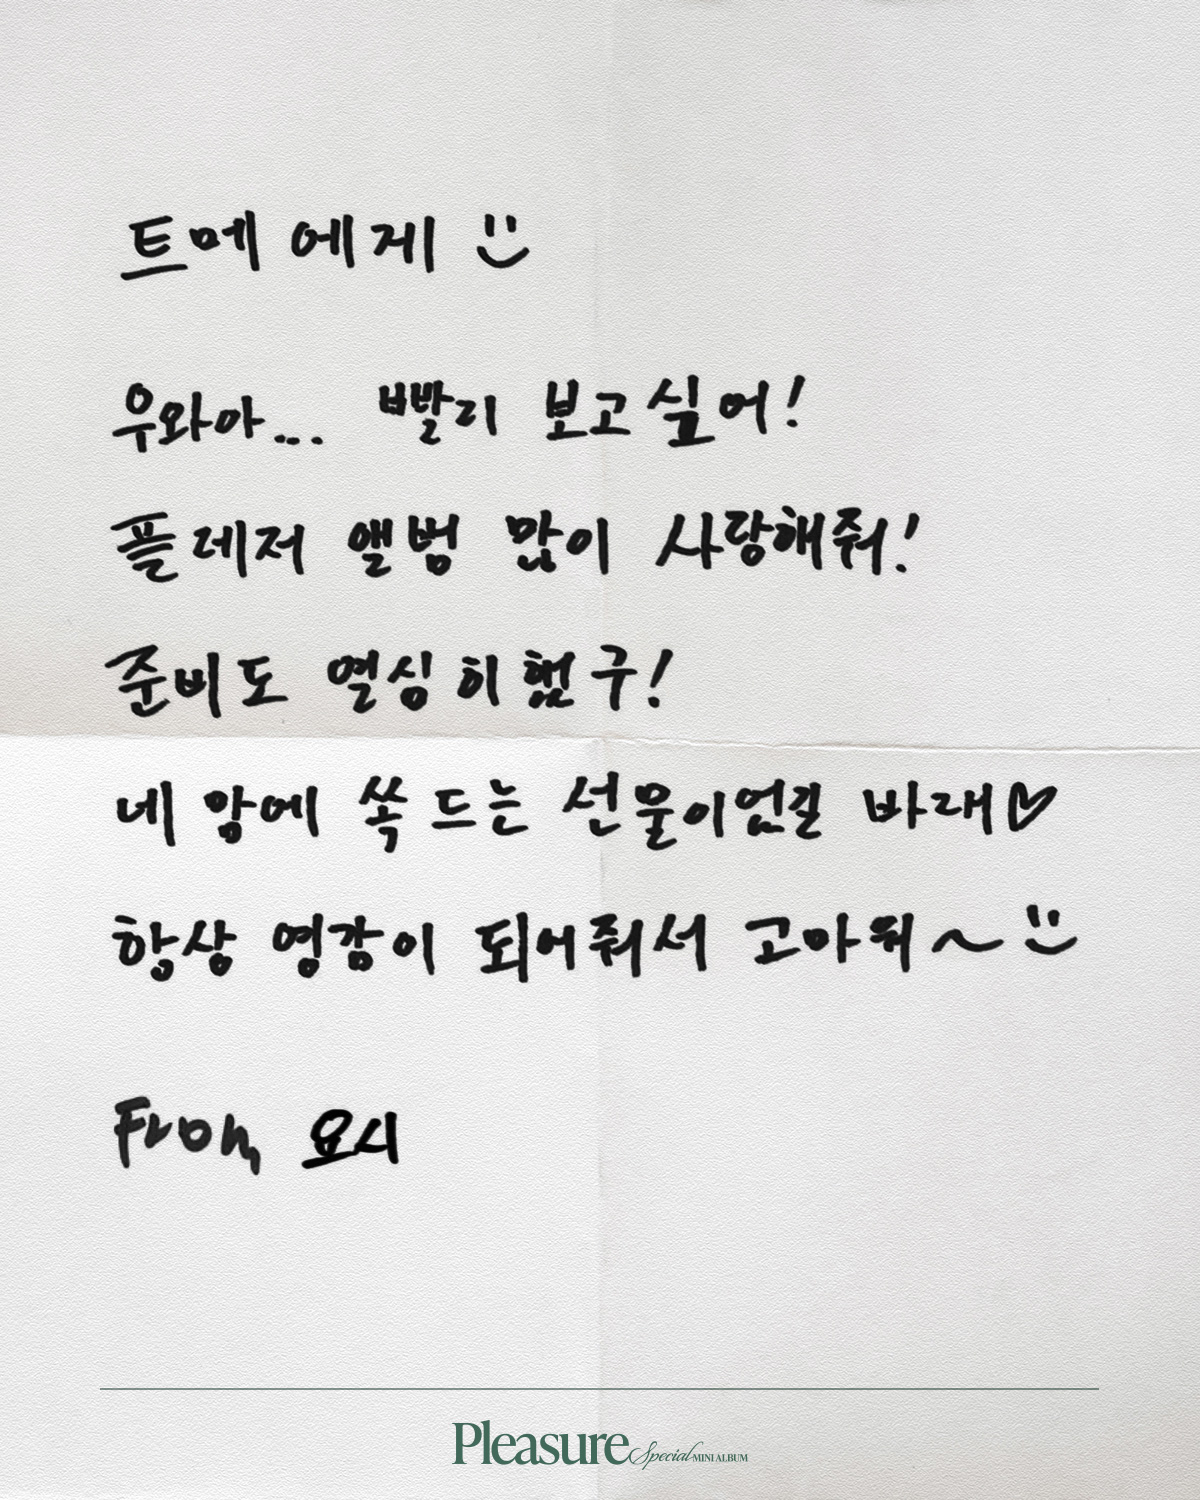 트메에게 :)
우와아... 빨리 보고싶어!
플레저 앨범 많이 사랑해줘!
준비도 열심히 했구!
네 맘에 쏙 드는 선물이었길 바래♡
항상 영감이 되어줘서 고마워~ :)
From, 요시
Pleasure Special MINI ALBUM